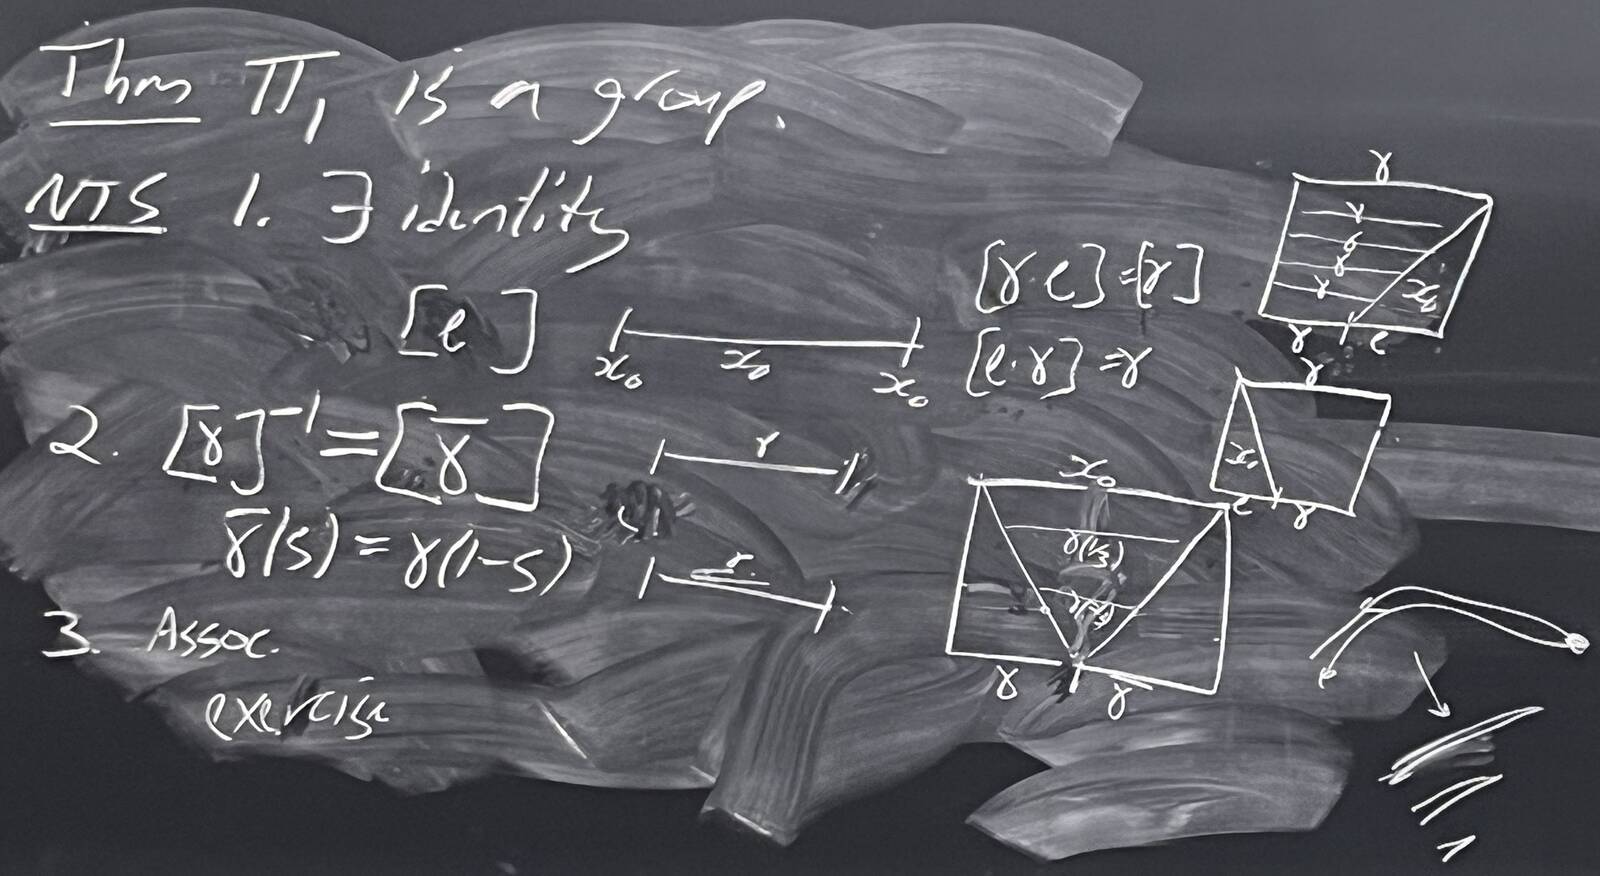 Thm π₁ is a group.
NTS 1. ∃ identity
[e]
x₀ x₀ x₀
[γ·e]=[γ]
[e·γ]=γ
γ
γ
γ
γ
γ
x₀
γ e
γ
x₀
e γ
2. [γ]⁻¹=[γ̄]
γ
γ̄(s)=γ(1-s)
γ̄
x₀
γ γ̄
3. Assoc.
exercise